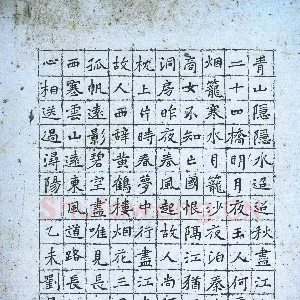 青山隱隱水迢迢秋盡江
二十四橋明月夜玉人何
烟籠寒水月籠沙夜泊秦
商女不知亡國恨隔江猶
洞房昨夜春風起故人尚
枕上片時春夢中行盡江
故人西辭黄鶴樓烟花三
孤帆遠影碧空盡唯見長
西塞雲山遠東風道路長
心相送過潯陽乙未劉